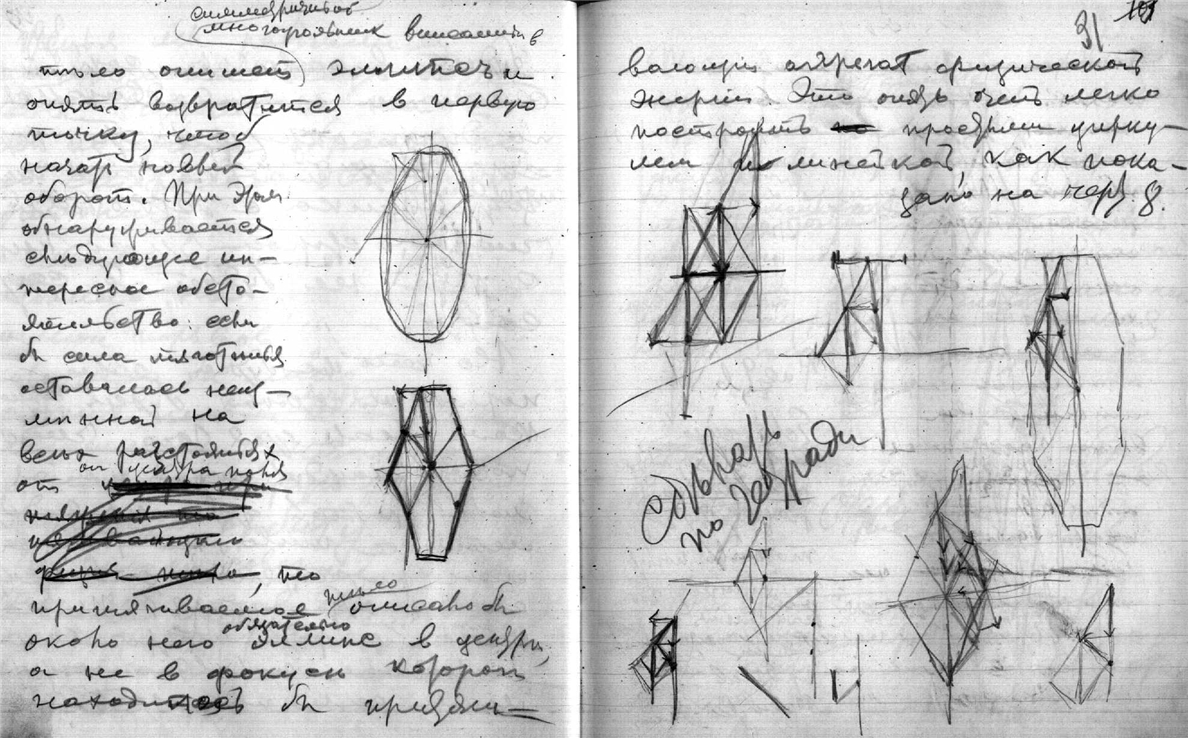 симметричный
многоугольник вписанный в
тело опишет эллипс и
опять возвратится в первую
точку, чтоб
начать новый
оборот. При этом
обнаруживается
следующее ин-
тересное обсто-
ятельство: если
бы сила тяготения
оставалась неиз-
менной на
всех расстояниях
от центра поля
, то
притягиваемое тело описало бы
около него обязательно эллипс в центре,
а не в фокусе которой
находилось бы притяги-
31
вающий агрегат физической
энергии. Это очень легко
построить простым цирку-
лем и линейкой, как пока-
зано на черт. 8.
по тетради